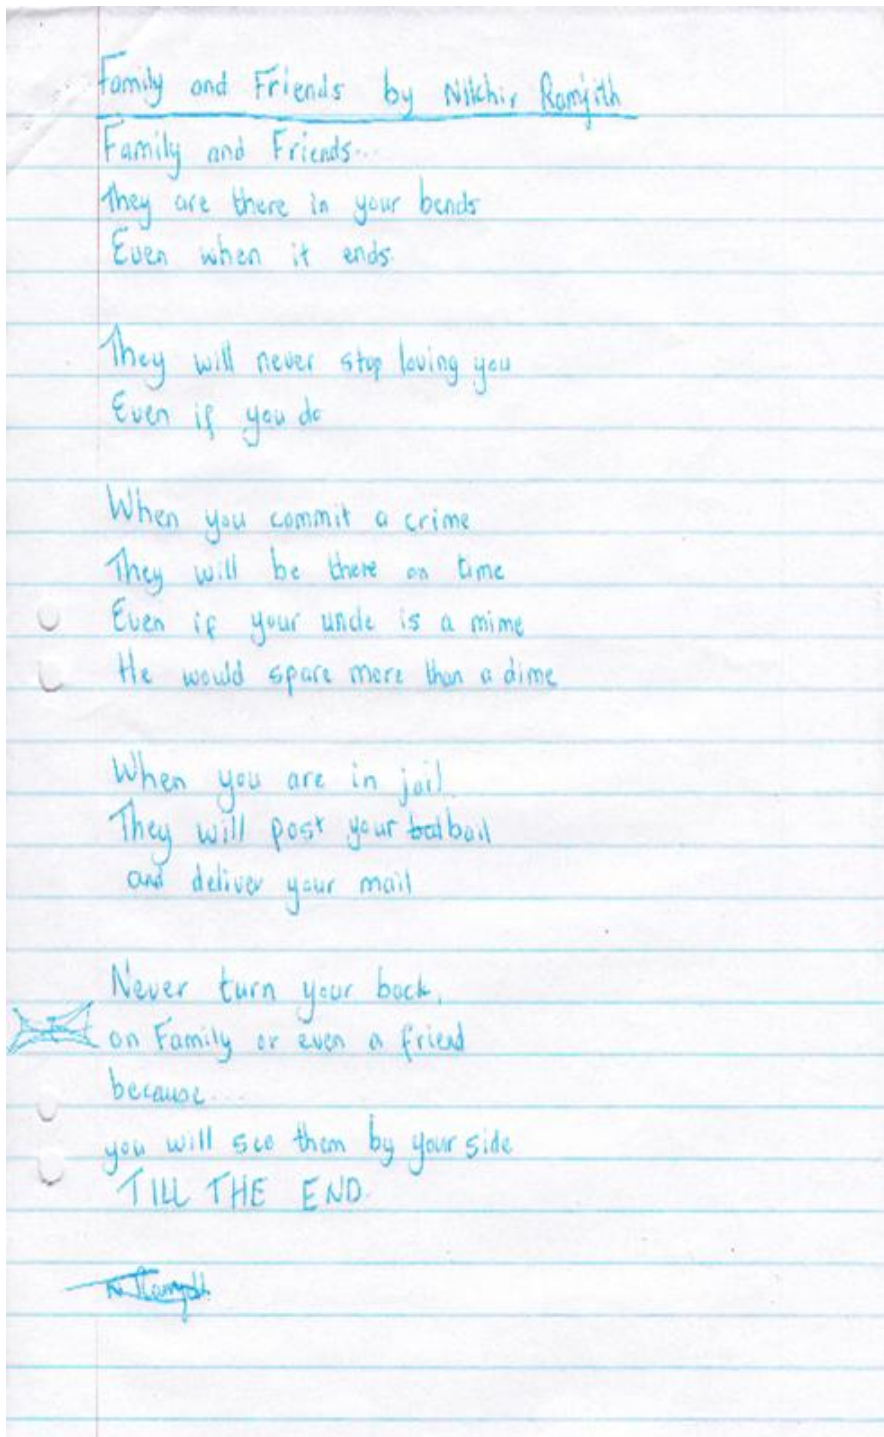 Family and Friends by Nilchir Ramjith
Family and Friends...
They are there in your bends
Even when it ends.
They will never stop loving you
Even if you do
When you commit a crime
They will be there on time
Even if your uncle is a mime
He would spare more than a dime
When you are in jail
They will post your bail
and deliver your mail
Never turn your back,
on Family or even a friend
because...
you will see them by your side
TILL THE END.